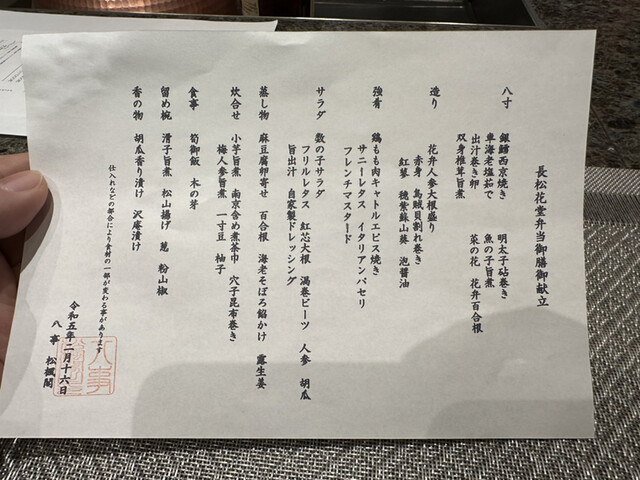 長松花堂弁当御膳御献立
八寸 銀鱈西京焼き 明太子砧巻き
車海老塩茹で 魚の子旨煮
出汁巻き卵 菜の花 花弁百合根
双身椎茸旨煮
造り 花弁人参大根盛り
赤身 烏賊貝割れ巻き
紅蓼 穂紫蘇山葵 泡醤油
強肴 鶏もも肉キャトルエピス焼き
サニーレタス イタリアンパセリ
フレンチマスタード
サラダ 数の子サラダ
フリルレタス 紅芯大根 渦巻ビーツ 人参 胡瓜
旨出汁 自家製ドレッシング
蒸し物 麻豆腐卵寄せ 百合根 海老そぼろ餡かけ 露生姜
炊合せ 小芋旨煮 南京含め煮茶巾 穴子昆布巻き
梅人参旨煮 一寸豆 柚子
食事 筍御飯 木の芽
留め椀 滑子旨煮 松山揚げ 葱 粉山椒
香の物 胡瓜香り漬け 沢庵漬け
仕入れなどの都合により食材の一部が変わる事があります
令和五年二月十六日
八事 松楓閣